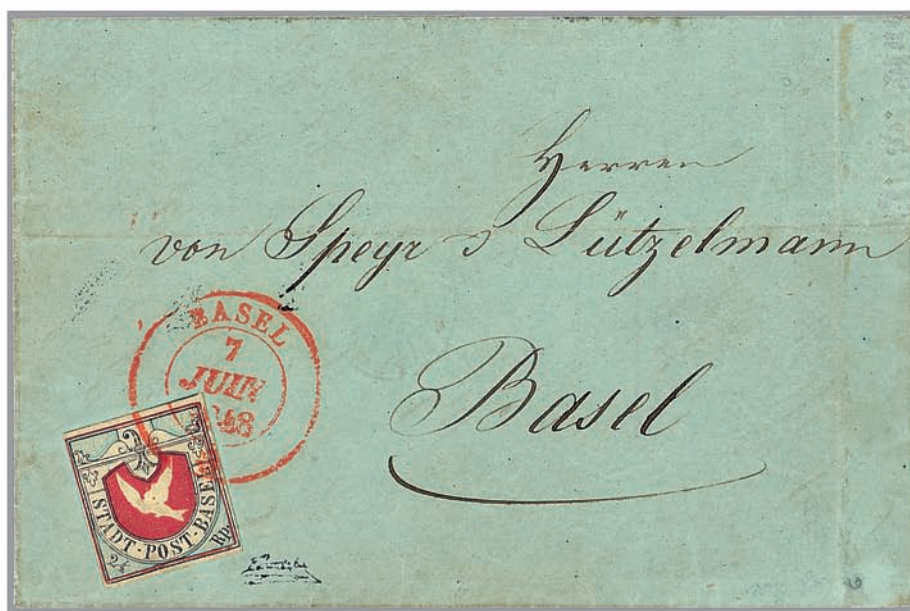 Herren
von Speyr & Lützelmann
BASEL
7
JUIN
1848
Basel
STADT-POST-BASEL
2½ Rp.